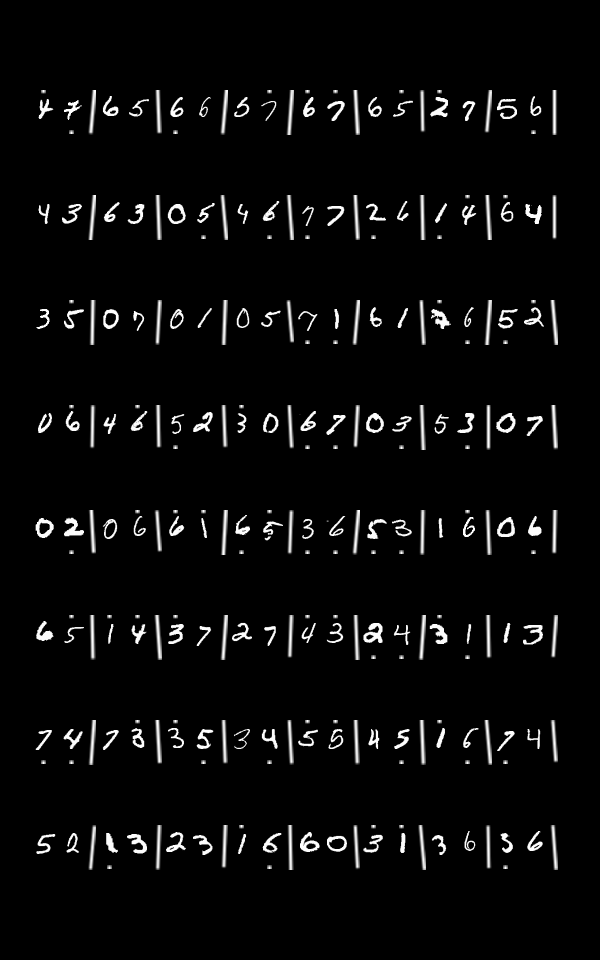 4 7 | 6 5 | 6 6 | 5 7 | 6 7 | 6 5 | 2 7 | 5 6 |
4 3 | 6 3 | 0 5 | 4 6 | 7 7 | 2 6 | 1 4 | 6 4 |
3 5 | 0 7 | 0 1 | 0 5 | 7 1 | 6 1 | 7 6 | 5 2 |
0 6 | 4 6 | 5 2 | 3 0 | 6 7 | 0 3 | 5 3 | 0 7 |
0 2 | 0 6 | 6 1 | 6 5 | 3 6 | 5 3 | 1 6 | 0 6 |
6 5 | 1 4 | 3 7 | 2 7 | 4 3 | 2 4 | 3 1 | 1 3 |
7 4 | 7 3 | 3 5 | 3 4 | 5 5 | 4 5 | 1 6 | 7 4 |
5 2 | 1 3 | 2 3 | 1 6 | 6 0 | 3 1 | 3 6 | 3 6 |